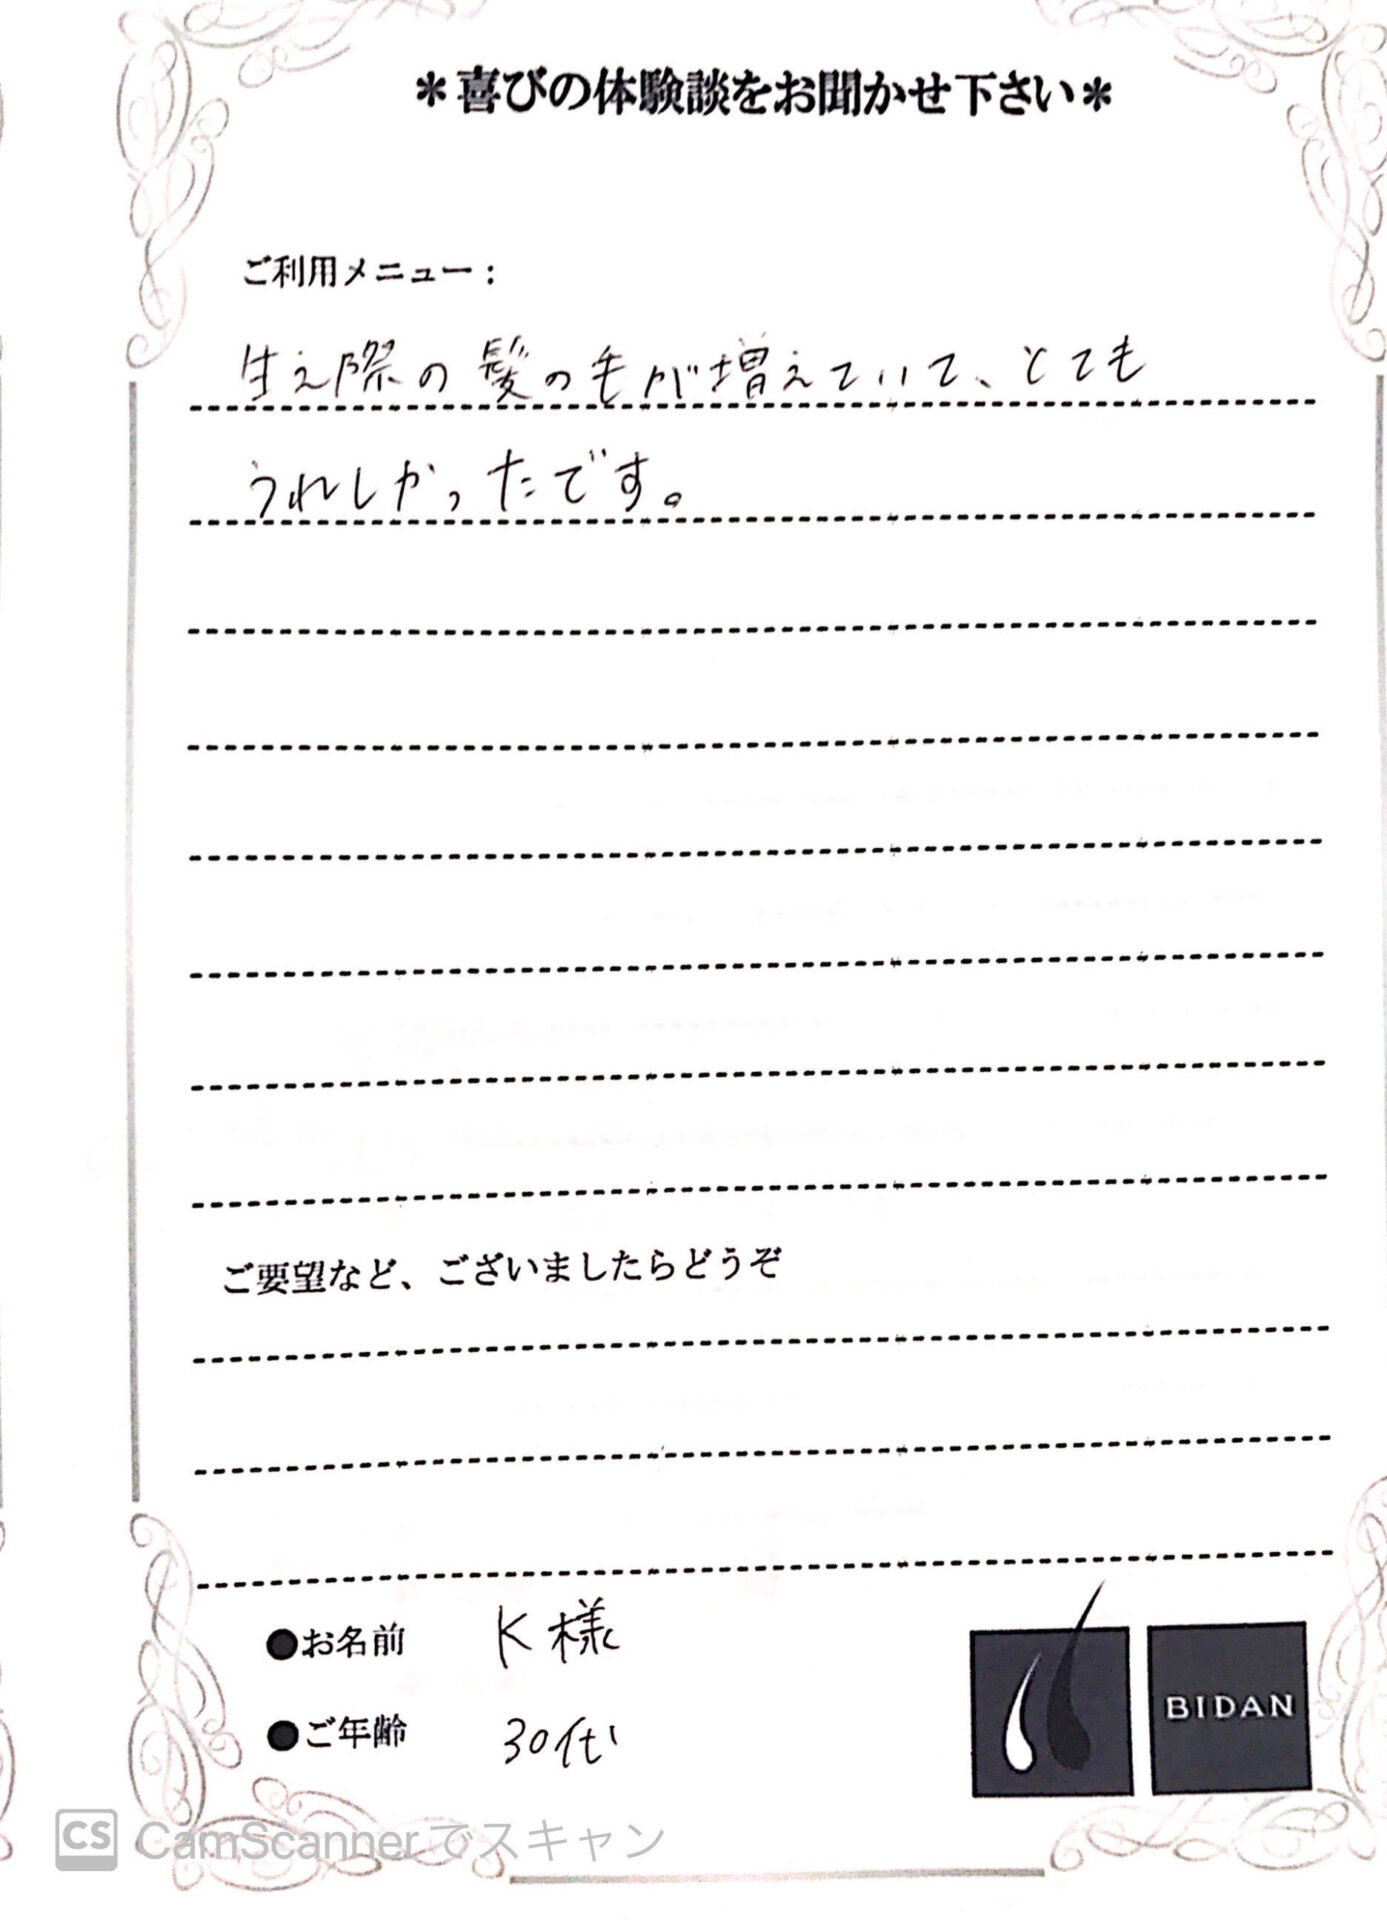 ＊喜びの体験談をお聞かせ下さい＊
ご利用メニュー：
生え際の髪の毛が増えていて、とても
うれしかったです。
ご要望など、ございましたらどうぞ
●お名前 K様
●ご年齢 30代
BIDAN
CS CamScannerでスキャン